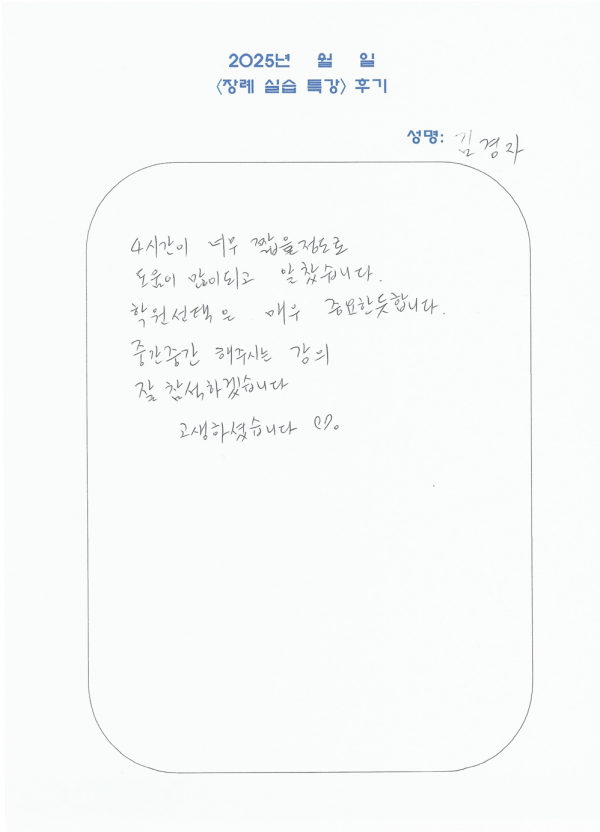 2025년 월 일
<장례 실습 특강> 후기
성명: 김경자
4시간이 너무 짧을정도로
도움이 많이되고 알찼습니다.
학원선택은 매우 중요한듯합니다.
중간중간 해주시는 강의
잘 참석하겠습니다
고생하셨습니다